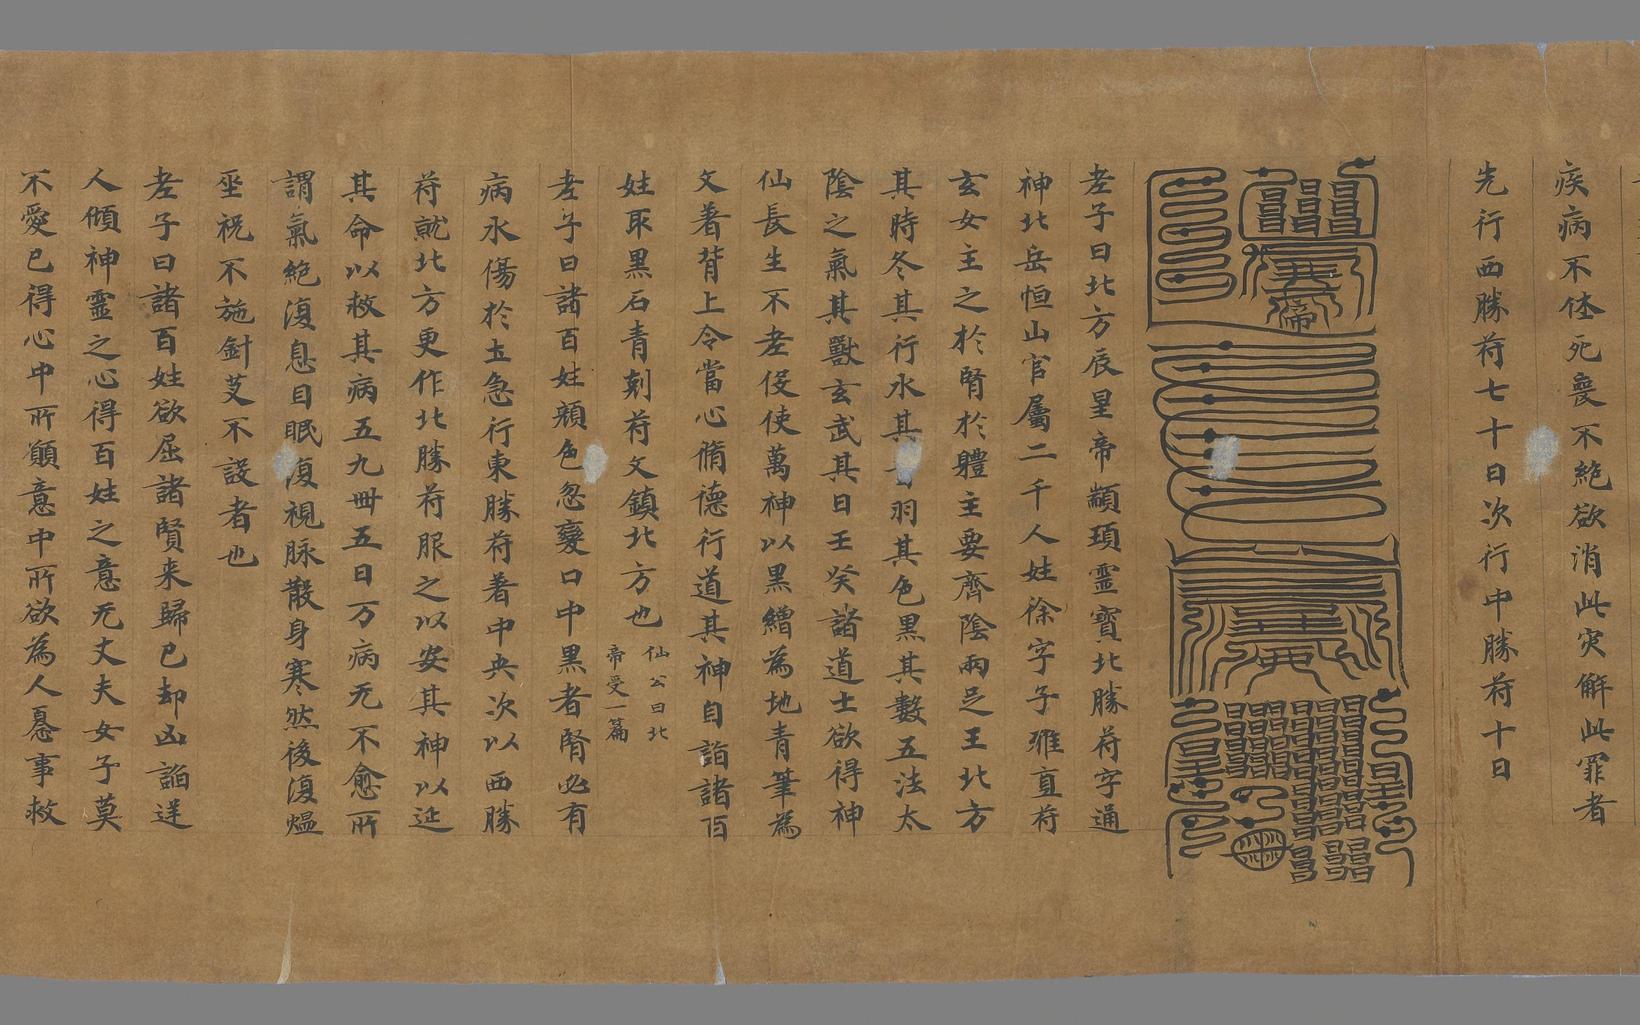 疾病不使死喪不絶欲消此灾解此罪者
先行西勝符七十日次行中勝符十日
老子曰北方辰星帝顓頊靈寳北勝符字通
神北岳恒山官屬二千人姓徐字子雅直符
玄女主之於腎於體主要齊陰兩足王北方
其時冬其行水其羽其色黒其數五法太
陰之氣其獸玄武其日壬癸諸道士欲得神
仙長生不老伇使萬神以黒繒為地青筆為
文著背上令當心脩德行道其神自詣諸百
姓取黒石青刻符文鎮北方也
仙公曰北
帝受一篇
老子曰諸百姓顔色忽變口中黒者腎必有
病水傷於土急行東勝符著中央次以西勝
符就北方更作北勝符服之以安其神以延
其命以救其病五九卌五日万病无不愈所
謂氣絶復息目眠復視脉散身寒然後復煴
巫祝不施針艾不設者也
老子曰諸百姓欲屈諸賢来歸已却凶謟送
人傾神靈之心得百姓之意无丈夫女子莫
不愛已得心中所願意中所欲為人愚事救